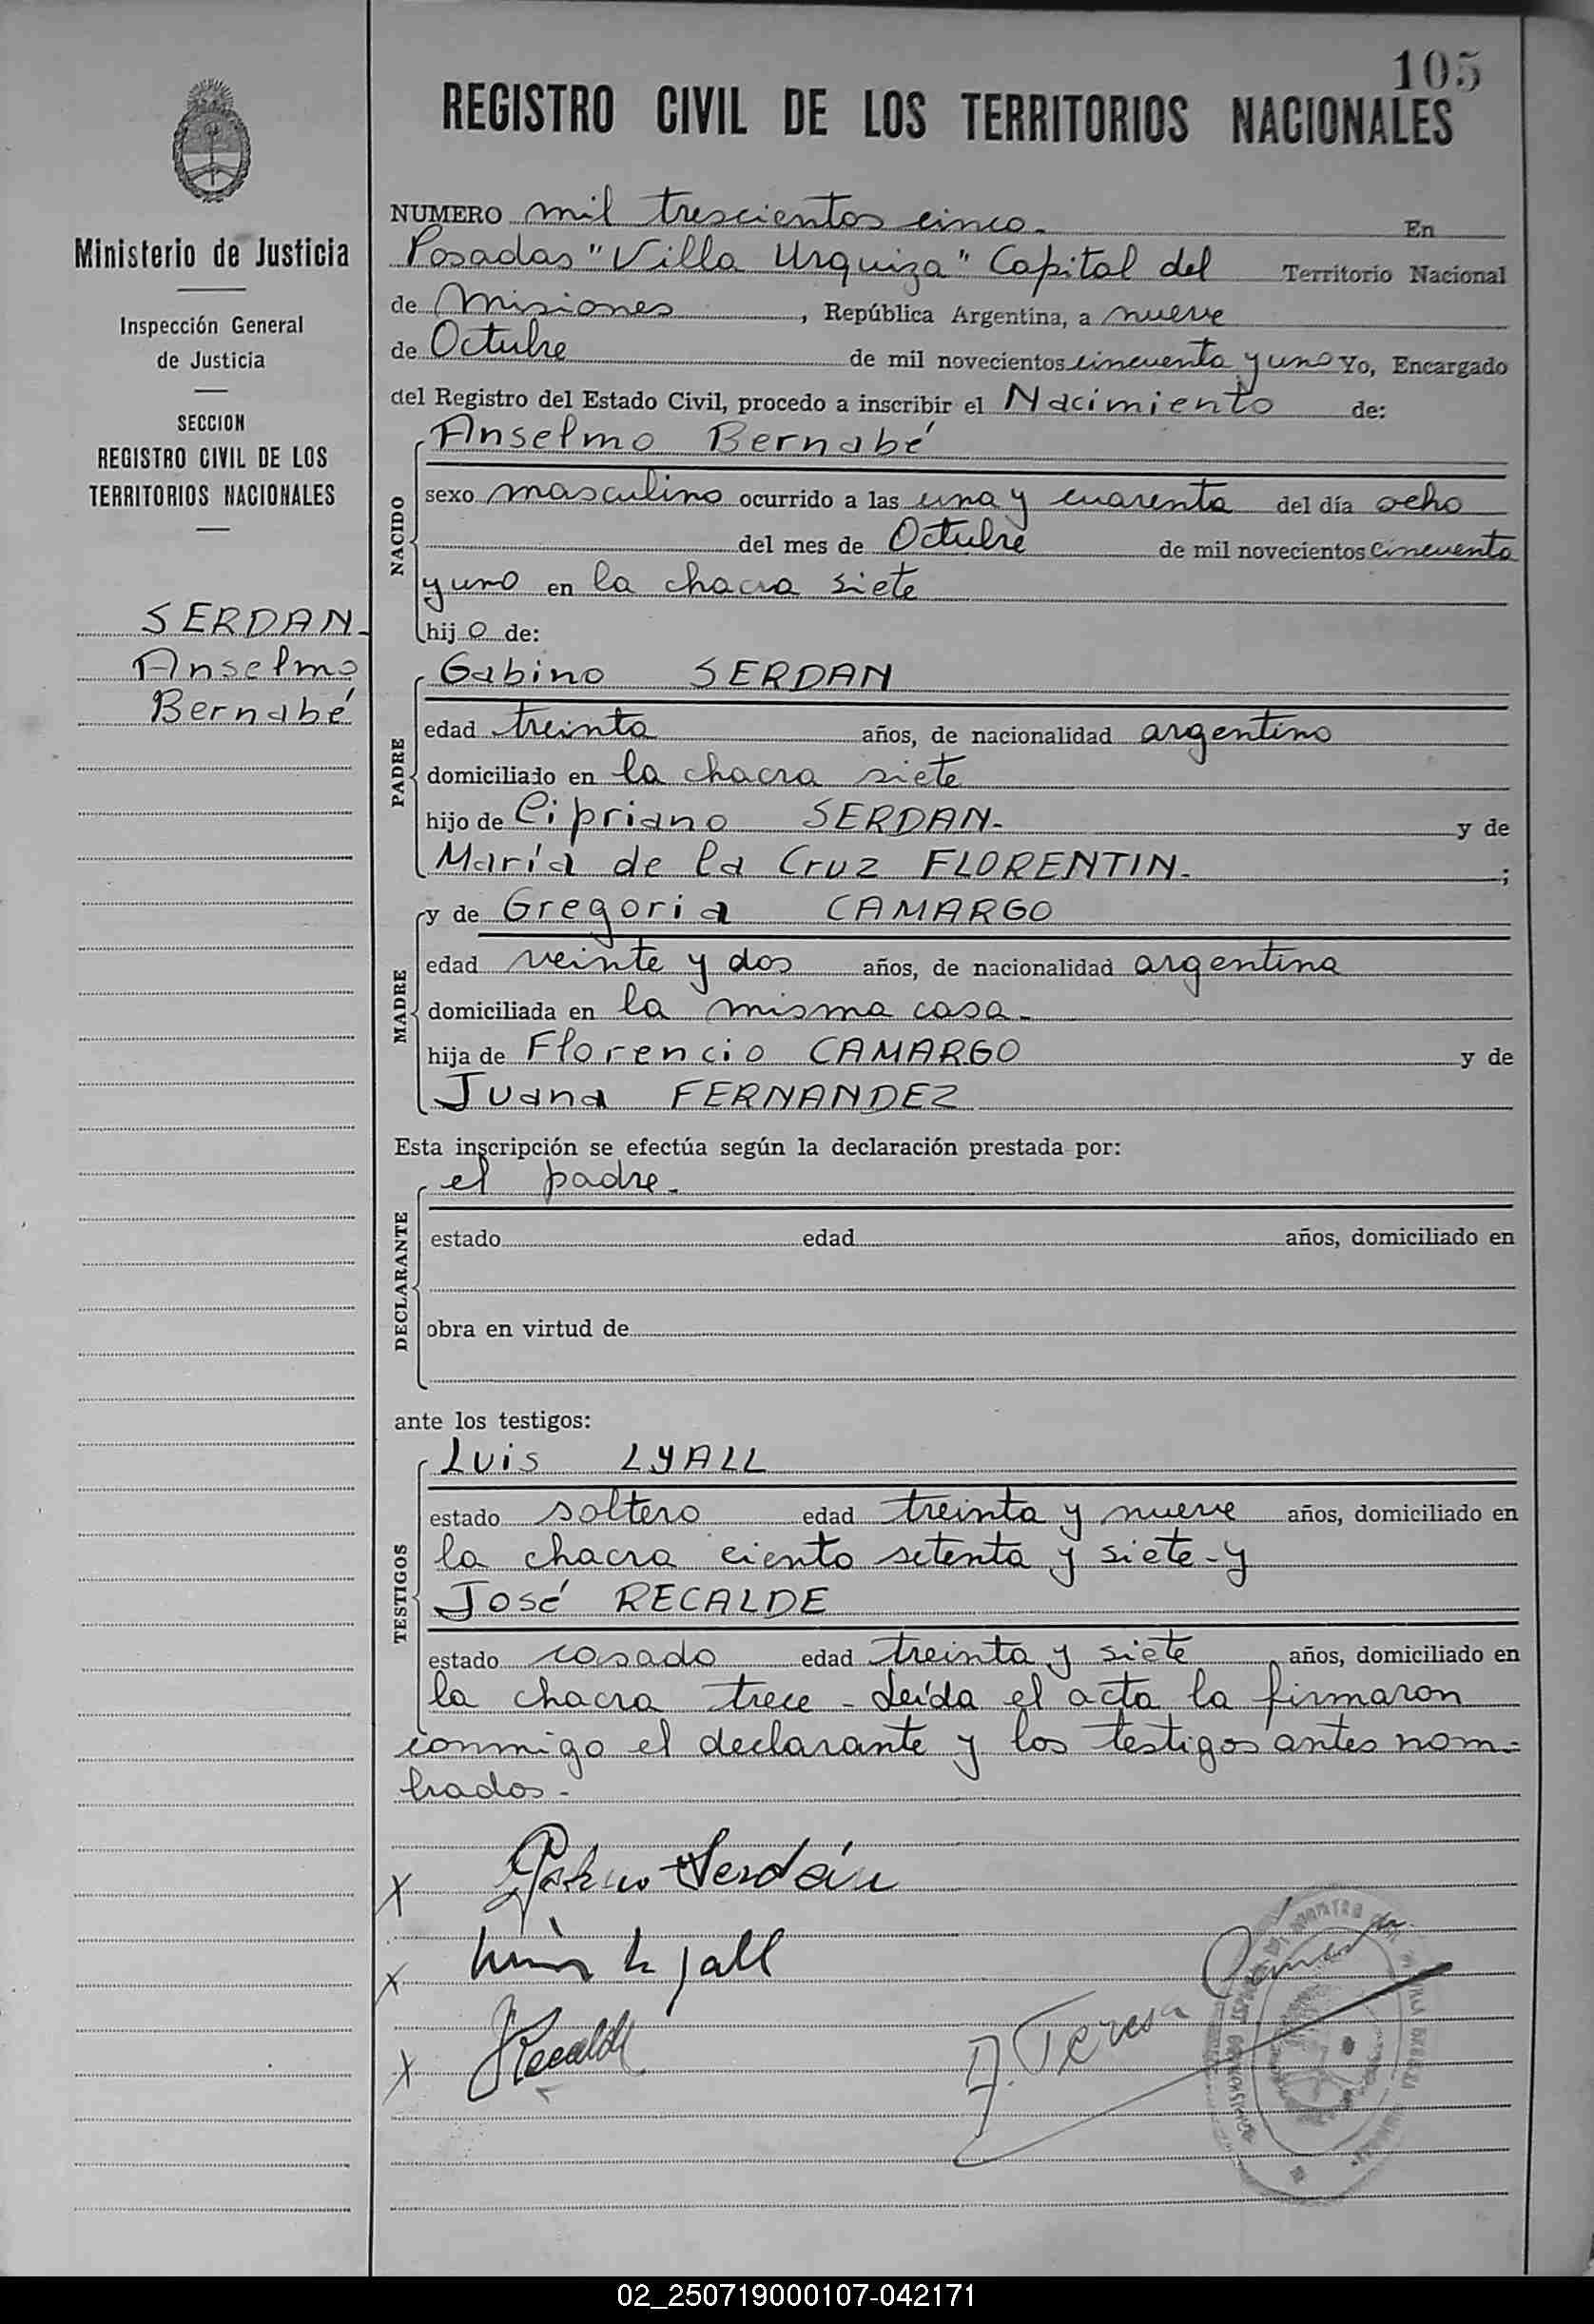 105
REGISTRO CIVIL DE LOS TERRITORIOS NACIONALES
Ministerio de Justicia
Inspección General
de Justicia
SECCION
REGISTRO CIVIL DE LOS
TERRITORIOS NACIONALES
SERDAN-
Anselmo
Bernabé
NUMERO mil trescientos cinco. En
Posadas "Villa Urquiza" Capital del Territorio Nacional
de Misiones, República Argentina, a nueve
de Octubre de mil novecientos cincuenta y uno Yo, Encargado
del Registro del Estado Civil, procedo a inscribir el Nacimiento de:
NACIDO
Anselmo Bernabé
sexo masculino ocurrido a las una y cuarenta del día ocho
del mes de Octubre de mil novecientos cincuenta
y uno en la chacra siete
hijo de:
PADRE
Gabino SERDAN
edad treinta años, de nacionalidad argentino
domiciliado en la chacra siete
hijo de Cipriano SERDAN- y de
María de la Cruz FLORENTIN- ;
MADRE
y de Gregoria CAMARGO
edad veinte y dos años, de nacionalidad argentina
domiciliada en la misma casa-
hija de Florencio CAMARGO y de
Juana FERNANDEZ
Esta inscripción se efectúa según la declaración prestada por:
DECLARANTE
el padre-
estado edad años, domiciliado en
obra en virtud de
ante los testigos:
TESTIGOS
Luis LYALL
estado soltero edad treinta y nueve años, domiciliado en
la chacra ciento setenta y siete-y
José RECALDE
estado casado edad treinta y siete años, domiciliado en
la chacra trece - Leída el acta la firmaron
conmigo el declarante y los testigos antes nom=
brados-
X Gabino Serdán
X Luis Lyall
X JRecalde
A. Teresa
02_250719000107-042171